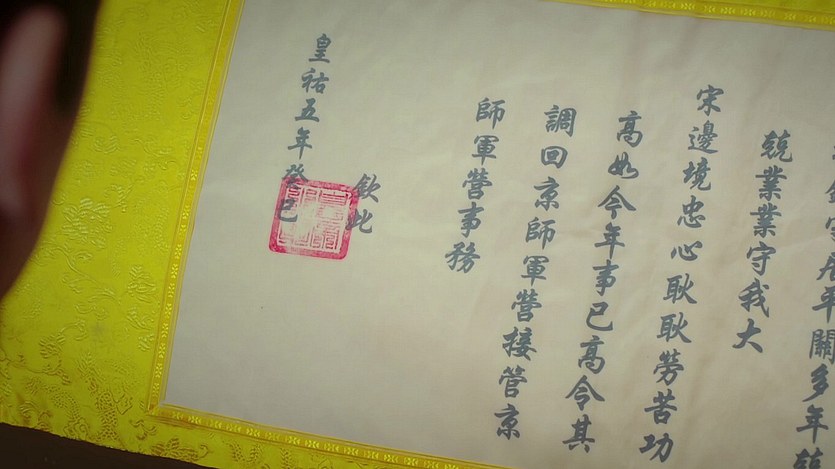 關多年兢
兢業業守我大
宋邊境忠心耿耿勞苦功
高如今年事已高令其
調回京師軍營接管京
師軍營事務
欽此
皇祐五年癸巳